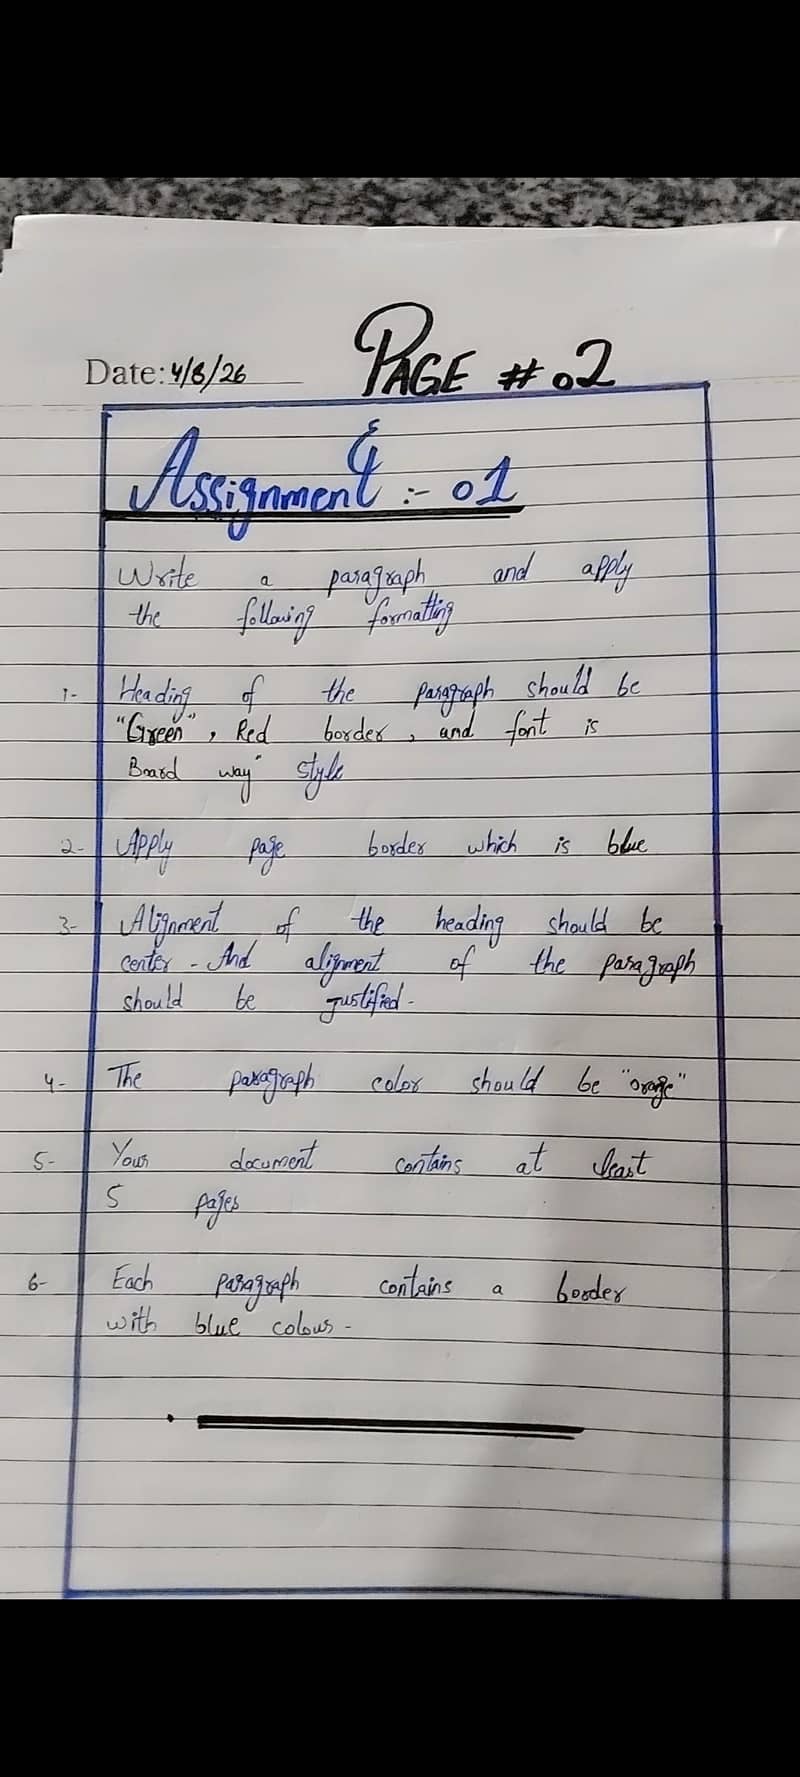 Date: 4/8/26
PAGE # 02
Assignment :- 01
Write a paragraph and apply
the following formatting
1- Heading of the paragraph should be
"Green", Red border, and font is
Board way" style
2- Apply page border which is blue
3- Alignment of the heading should be
center - And alignment of the paragraph
should be justified -
4- The paragraph color should be "orage"
5- Your document contains at least
5 pages
6- Each paragraph contains a border
with blue colour -